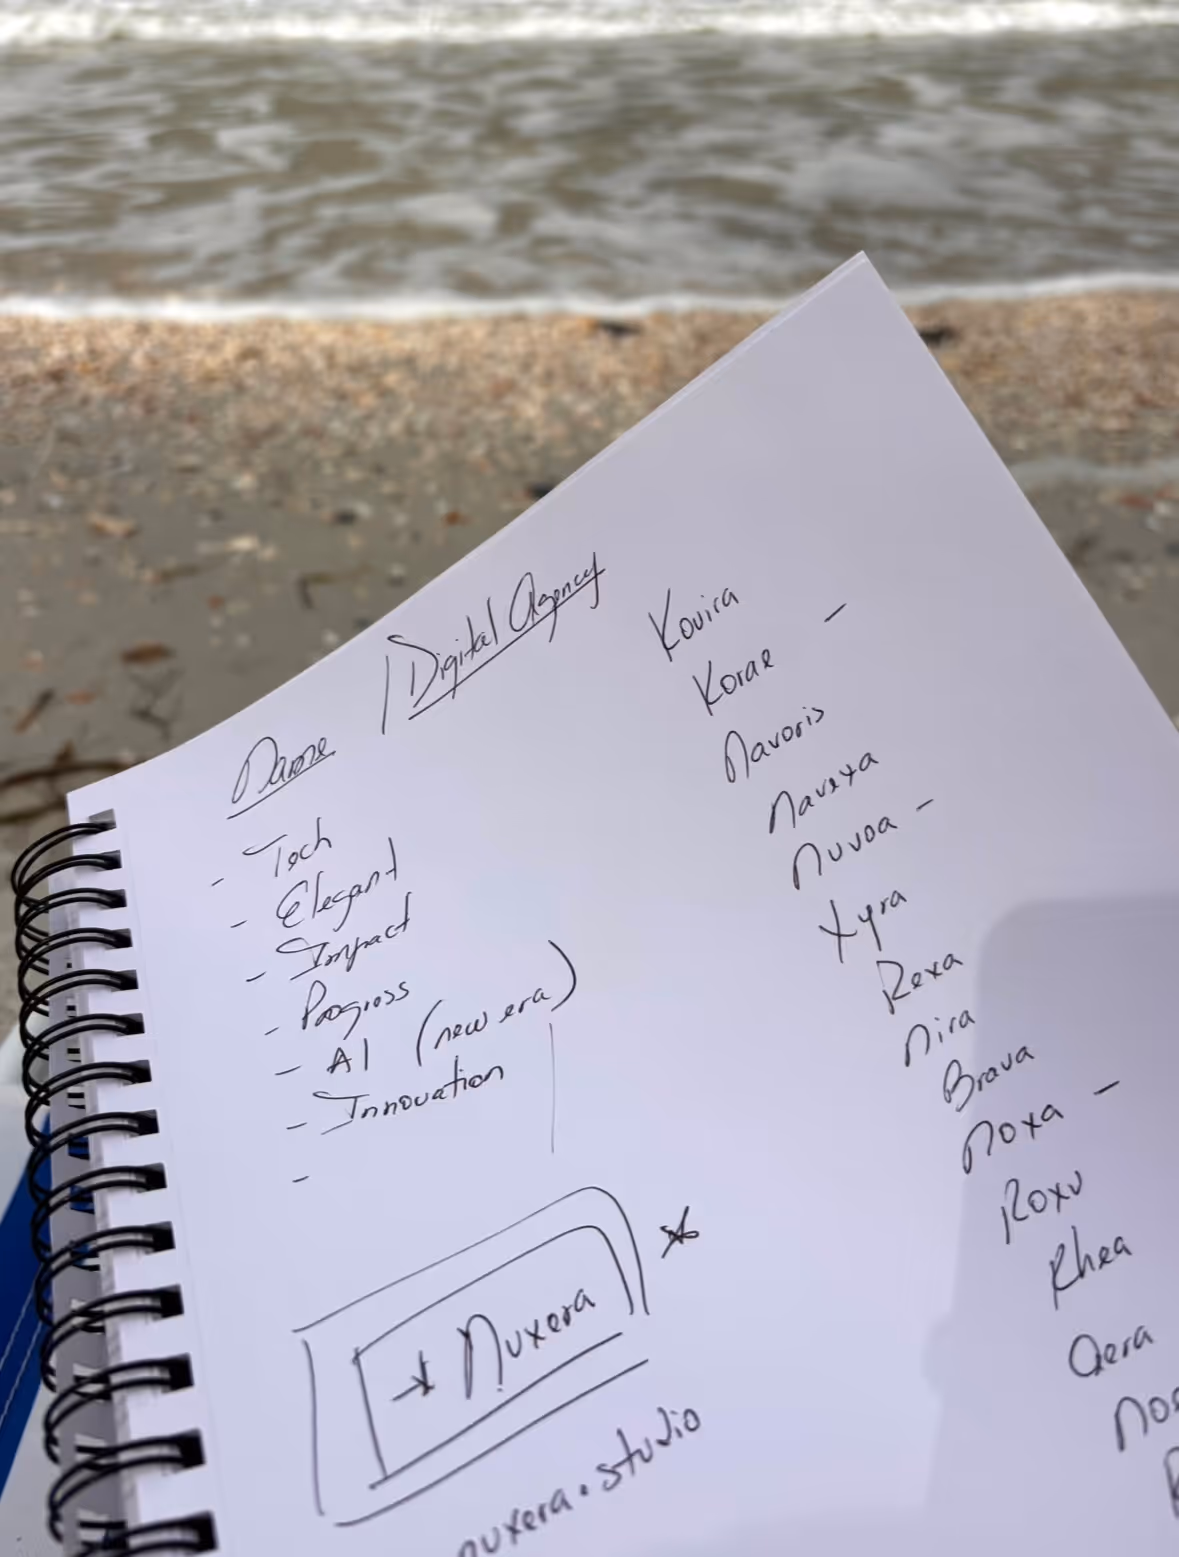 Name / Digital Agency
- Tech
- Elegant
- Impact
- Progress
- AI (new era)
- Innovation
-
→ Nuxera
nuxera.studio
Kovira
Korae -
Navoris
Navexa
Nuvoa -
Xyra
Rexa
Nira
Brava
Noxa -
Roxu
Rhea
Qera